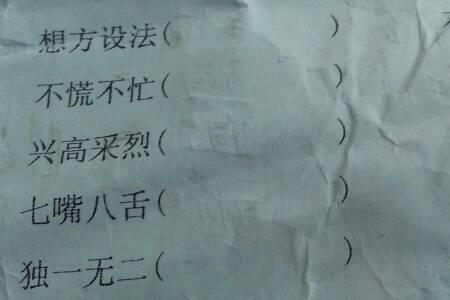 想方设法( )
不慌不忙( )
兴高采烈( )
七嘴八舌( )
独一无二( )